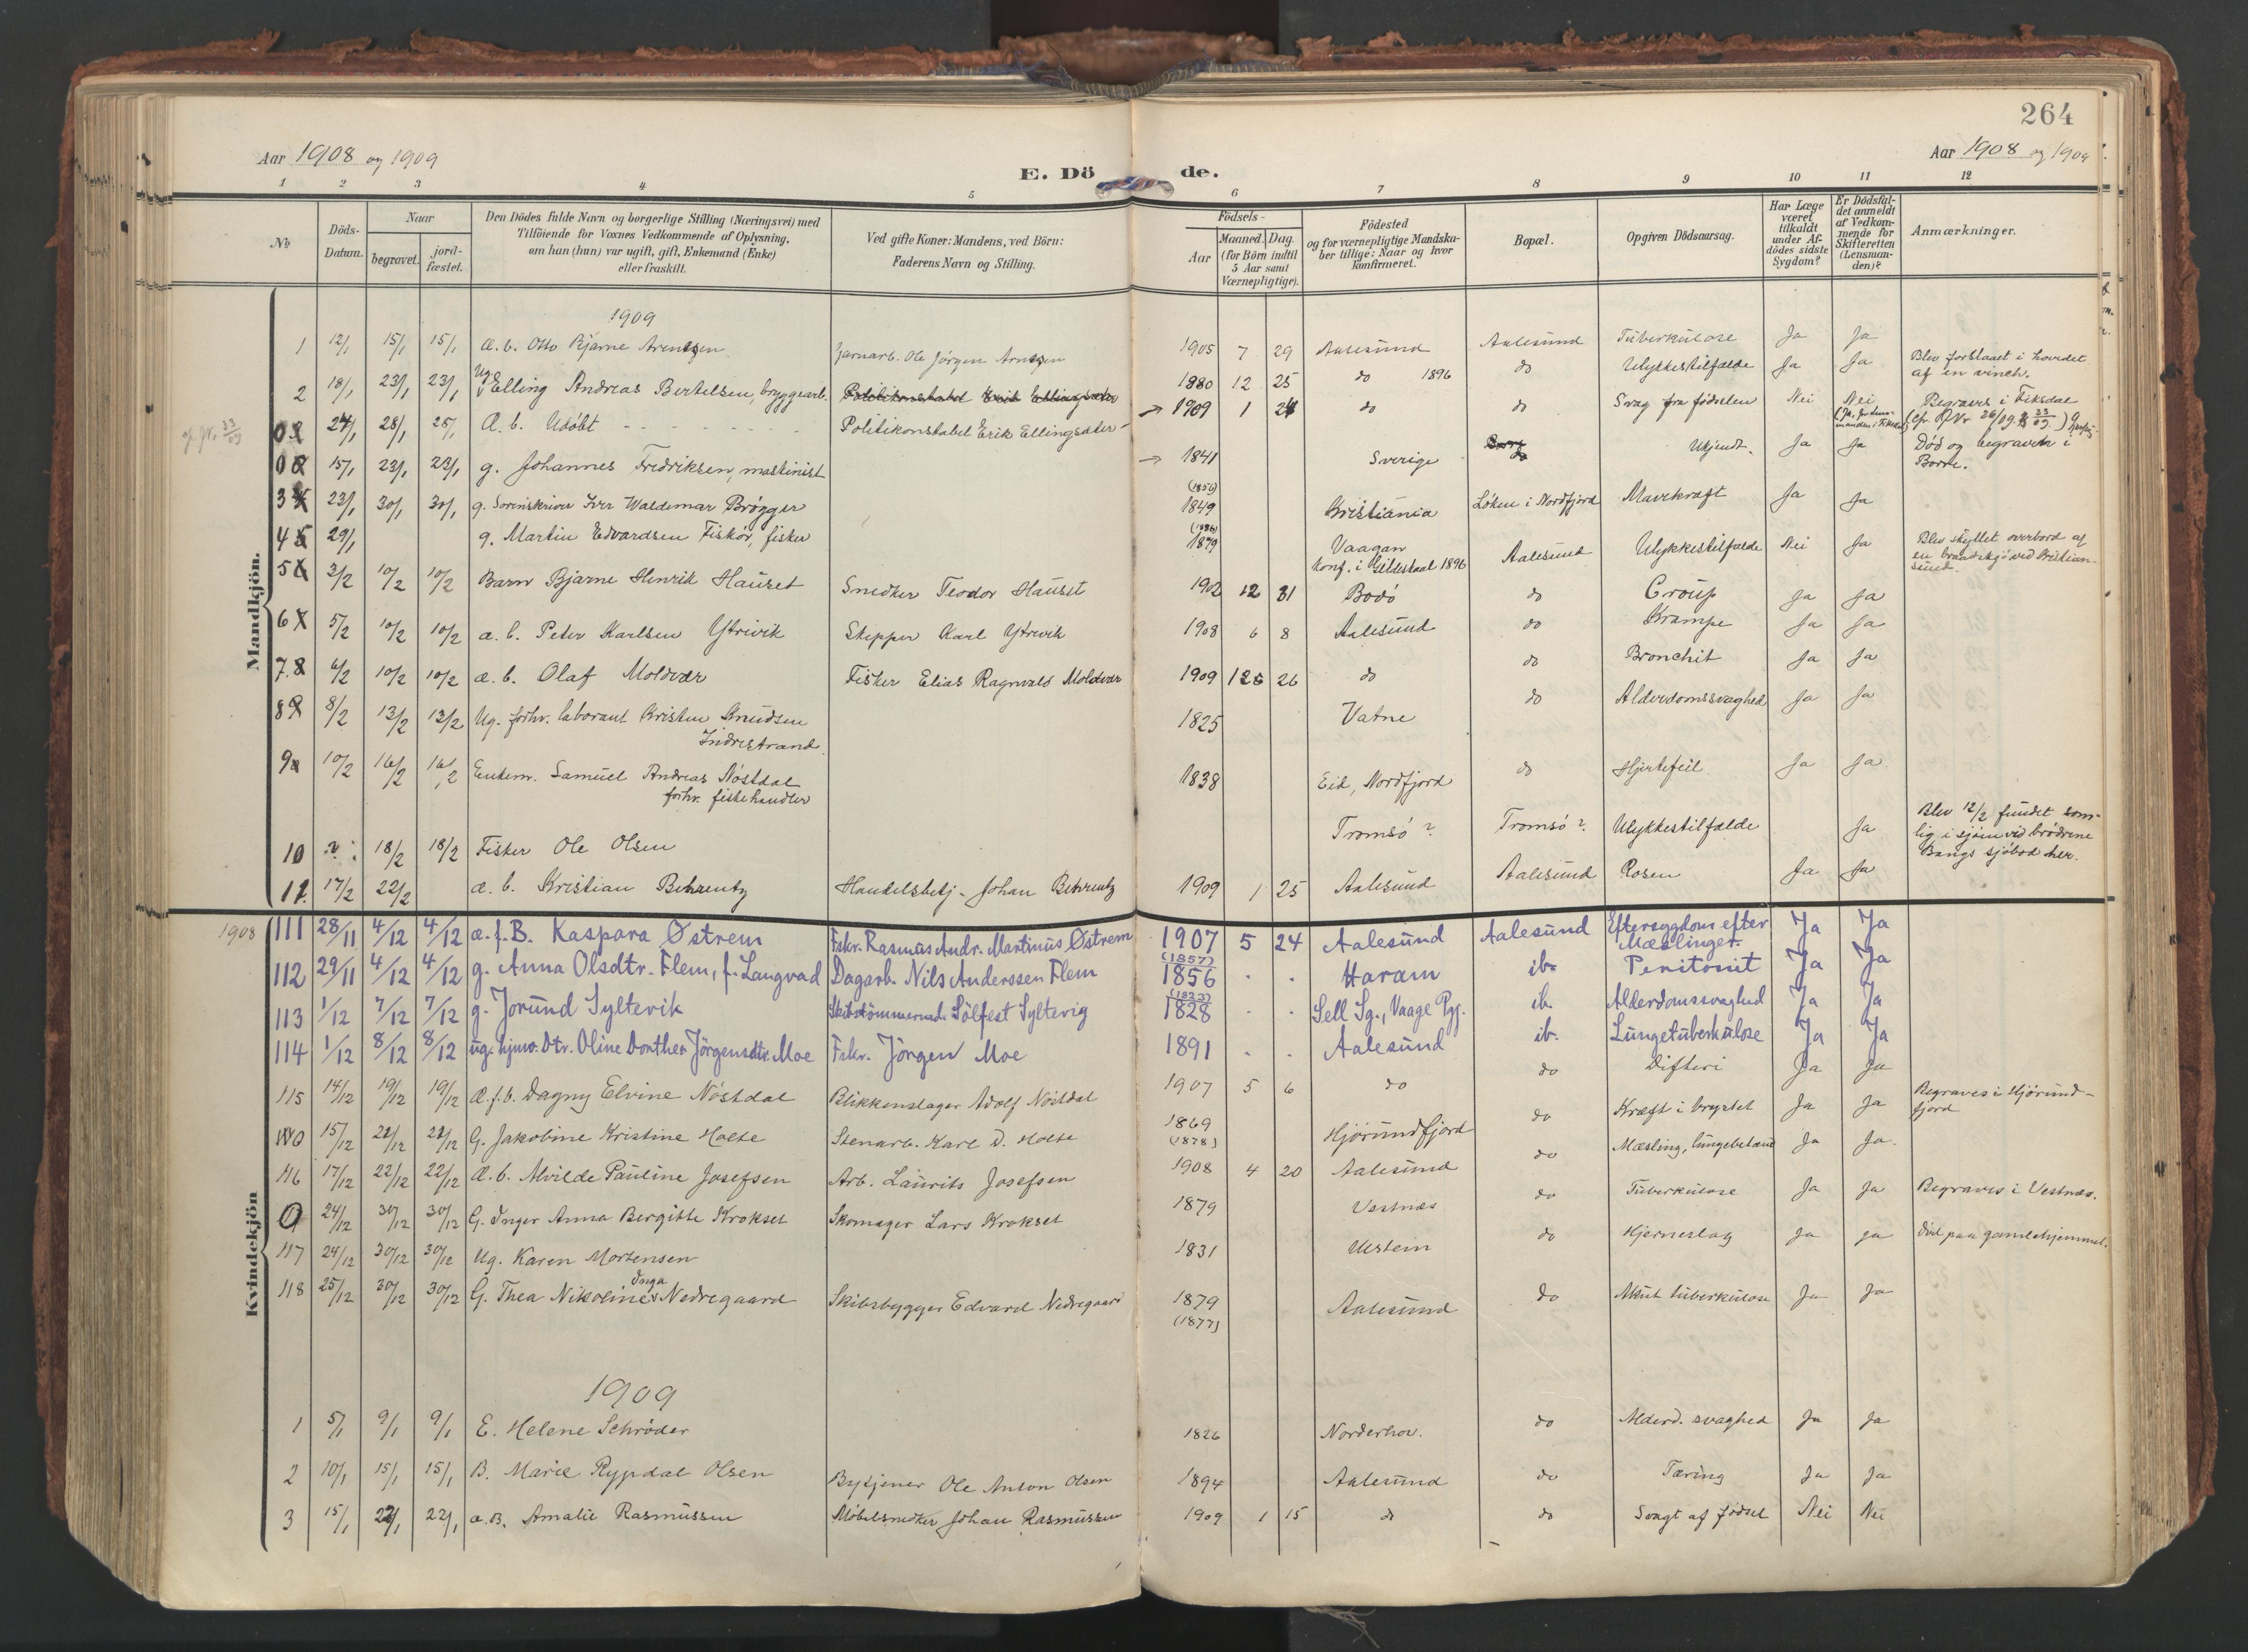 264
Aar 1908 og 1909
E. Döde.
Aar 1908 og 1909
1 2 3 4 5 6 7 8 9 10 11 12
No
Döds-Datum.
Naar
begravet.
jordfæstet.
Den Dödes fulde Navn og borgerlige Stilling (Næringsvei) med
Tilföiende for Voxnes Vedkommende af Oplysning,
om han (hun) var ugift, gift, Enkemand (Enke)
eller fraskilt.
Ved gifte Koner: Mandens, ved Börn:
Faderens Navn og Stilling.
Födsels-
Aar
Maaned. Dag
(for Börn indtil
5 Aar samt
Værnepligtige).
Födested
og for værnepligtige Mandska-
ber tillige: Naar og hvor
konfirmeret.
Bopæl.
Opgiven Dödsaarsag.
Har Læge
været
tilkaldt
under Af-
dödes sidste
Sygdom?
Er Dödsfal-
det anmeldt
af Vedkom-
mende for
Skifteretten
(Lensman-
den)?
Anmærkninger.
Mandkjön.
1909
1 12/1 15/1 15/1 Æ. b. Otto Bjarne Arentzen Jarnarb. Ole Jörgen Arntzen 1905 7 29 Aalesund Aalesund Tuberkulose Ja Ja
2 18/1 23/1 23/1 Ug. Elling Andreas Bertelsen, bryggearb. 1880 12 25 do 1896 do Ulykkestilfælde Ja Ja Blev forslaaet i hovedet
af en vinch.
0 24/1 28/1 28/1 Æ. b. Udöbt Politikonstabel Erik Ellingsæter → 1909 1 24 do do Svag fra födselen Nei Nei Begraves i Fiksdal
0 15/1 23/1 23/1 g. Johannes Fredriksen, maskinist → 1841 Sverige do Ukjendt. Ja Ja Död og begraven i
Borre.
3 23/1 30/1 30/1 g. Sorenskriver Iver Waldemar Brögger (1856) 1849 Kristiania Löken i Nordfjord Mavekræft Ja Ja
4 29/1 g. Martin Edvardsen Fiskör, fisker 1879 Vaagan
Konf. i Gildeskaal 1896 Aalesund Ulykkestilfælde Nei Ja Blev skyllet overbord af
en braadskjö ved Kristian-
sund.
5 3/2 10/2 10/2 Barn Bjarne Henrik Hauset Snedker Teodor Hauset 1902 12 31 Bodö do Croup Ja Ja
6 5/2 10/2 10/2 æ. b. Peter Karlsen Ytrevik Skipper Karl Ytrevik 1908 6 8 Aalesund do Krampe Ja Ja
7 6/2 10/2 10/2 æ. b. Olaf Moldvær Fisker Elias Ragnvald Moldvær 1909 1 26 do do Bronchit Ja Ja
8 8/2 13/2 13/2 Ug. forhv. laborant Kristen Knudsen
Indrestrand 1825 Vatne do Alderdomssvaghed Ja Ja
9 10/2 16/2 16/2 Enkem. Samuel Andreas Nöstdal
forhv. fiskehandler 1838 Eid, Nordfjord do Hjertefeil Ja Ja
10 ? 18/2 18/2 Fisker Ole Olsen Tromsö ? Tromsö ? Ulykkestilfælde Ja Blev 12/2 fundet som
lig i sjöen ved brödrene
Bangs sjöbod her.
11 17/2 22/2 æ. b. Kristian Behrentz Handelsbetj. Johan Behrentz 1909 1 25 Aalesund Aalesund Rosen Ja Ja
Kvindekjön
1908
111 28/11 4/12 4/12 æ. f. B. Kaspara Østrem Fskr. Rasmus Andr. Martinus Østrem 1907 5 24 Aalesund Aalesund Eftersygdom efter
Mæslinger. Ja Ja
112 29/11 4/12 4/12 g. Anna Olsdtr. Flem, f. Langvad Dagarb. Nils Anderssen Flem (1857) 1856 . . Haram ib. Peritonit Ja Ja
113 1/12 7/12 7/12 g. Jorund Syltevik Skibstömmermd. Sölfest Syltevig (1823) 1828 . . Sell Sg., Vaage Pgj. ib. Alderdomssvaghed Ja Ja
114 1/12 8/12 8/12 ug. hjmv. Dtr. Oline Dorthea Jörgensdtr. Moe Fskr. Jörgen Moe 1891 . . Aalesund ib. Lungetuberkulose Ja Ja
115 14/12 19/12 19/12 Æ. f. b. Dagny Elvine Nöstdal Blikkenslager Adolf Nöstdal 1907 5 6 do do Difteri Ja Ja
15/12 21/12 21/12 G. Jakobine Kristine Holte Stenarb. Karl D. Holte 1869 (1878) Hjörundfjord do Kræft i brystet Ja Ja Begraves i Hjörund-
fjord
116 17/12 22/12 22/12 Æ. b. Alvilde Pauline Josefsen Arb. Laurits Josefsen 1908 4 20 Aalesund do Mæsling, lungebetænd Ja Ja
0 24/12 30/12 30/12 G. Inger Anna Bergitte Krokset Skomager Lars Krokset 1879 Vestnæs do Tuberkulose Ja Ja Begraves i Vestnæs.
117 24/12 30/12 30/12 Ug. Karen Mortensen 1831 Ulstein do Hjerneslag Ja Ja Död paa gamlehjemmet.
118 25/12 30/12 30/12 G. Thea Nikoline Inga Nedregaard Skibsbygger Edvard Nedregaard 1879 (1877) Aalesund do Akut tuberkulose Ja Ja
1909
1 5/1 9/1 9/1 E. Helene Schröder 1826 Norderhov. do Alderd. svaghed Ja Ja
2 10/1 15/1 15/1 B. Marie Rypdal Olsen Bytjener Ole Anton Olsen 1894 Aalesund do Tæring Ja Ja
3 15/1 22/1 22/1 æ. B. Amalie Rasmussen Möbelsnedker Johan Rasmussen 1909 1 15 do do Svagt af födsel Nei Nei